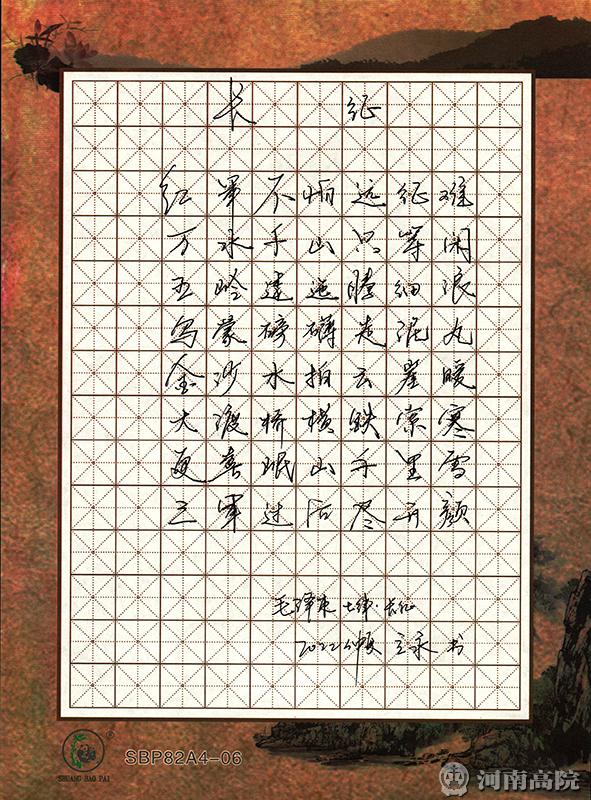 长征
红军不怕远征难
万水千山只等闲
五岭逶迤腾细浪
乌蒙磅礴走泥丸
金沙水拍云崖暖
大渡桥横铁索寒
更喜岷山千里雪
三军过后尽开颜
毛泽东 七律·长征
2022仲夏 立永 书
SHUANG BAO PAI
SBP82A4-06
河南高院